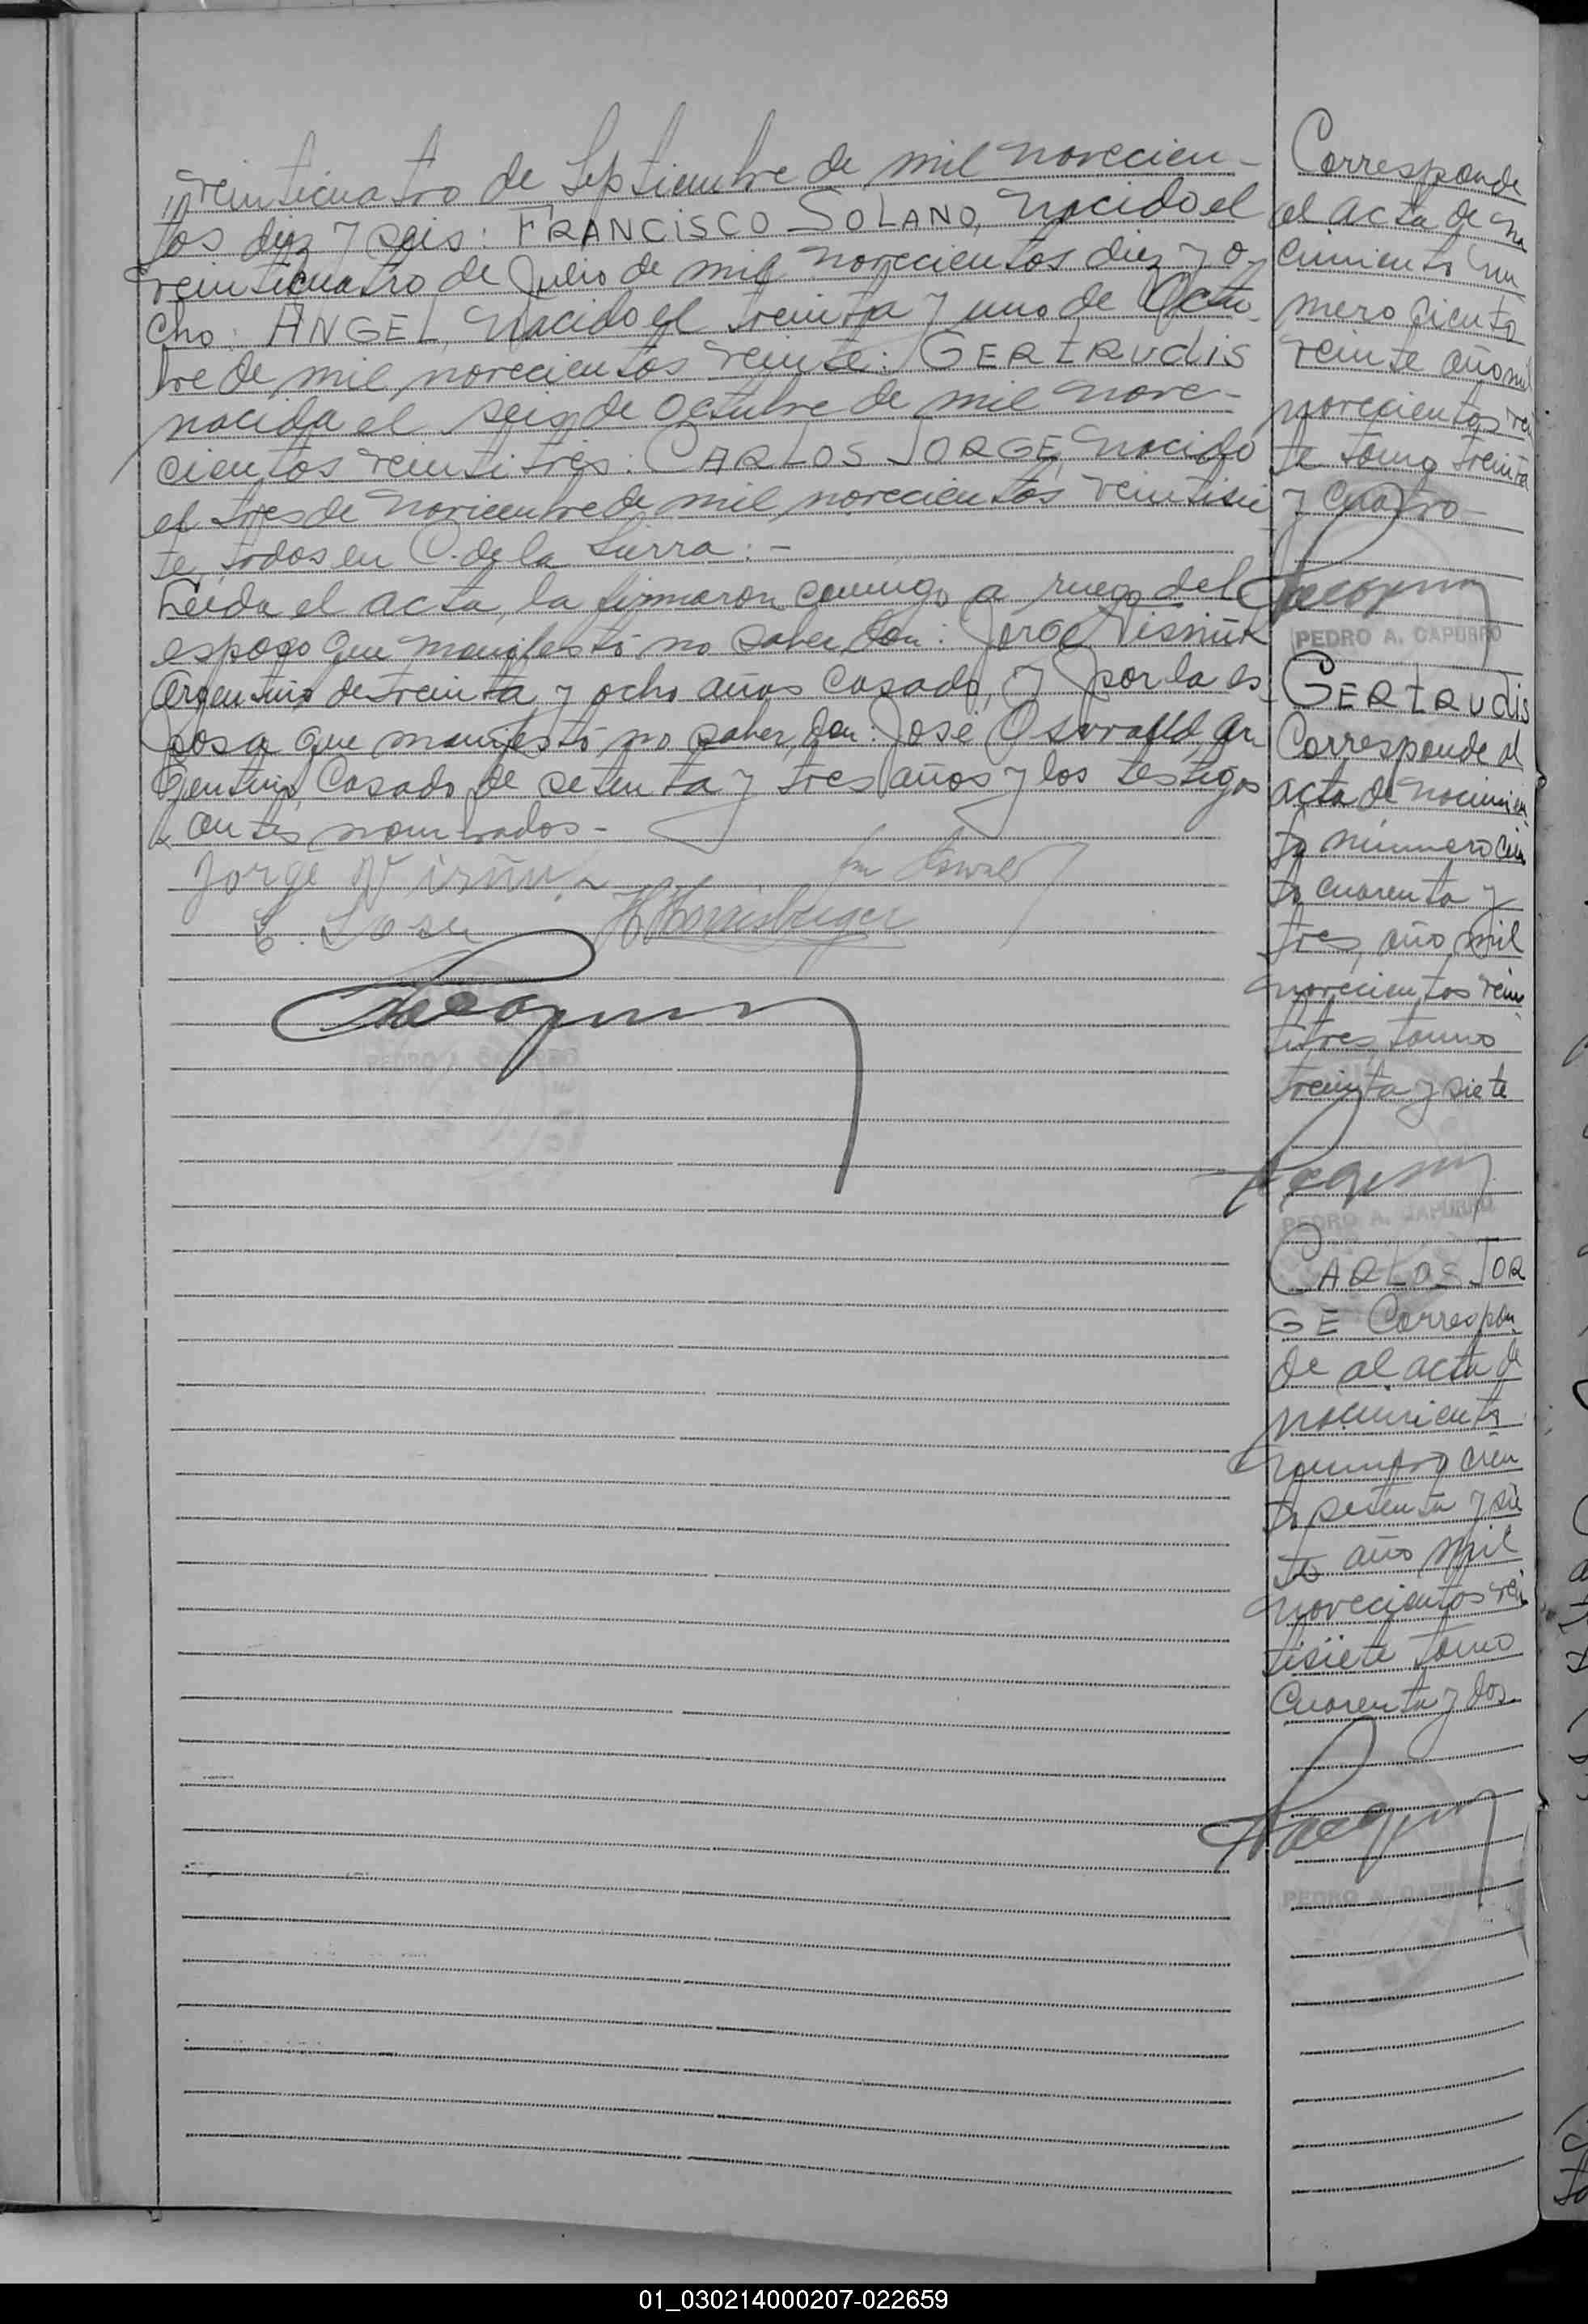 veinticuatro de Septiembre de mil novecien-
tos diez y seis: FRANCISCO SOLANO, nacido el
veinticuatro de Julio de mil novecientos diez y o-
cho: ANGEL, nacido el treinta y uno de Octu-
bre de mil novecientos veinte: GERTRUDIS
nacida el seis de Octubre de mil nove-
cientos veintitres: CARLOS JORGE, nacido
el tres de noviembre de mil novecientos veintisie
te, todos en C. de la Sierra.-
Leida el acta, la firmaron conmigo a ruego del
esposo que manifestó no saber, don: Jorge
Argentino de treinta y ocho años casado, y por la es
posa que manifestó no saber, don: José Osvaldd ar
gentino, casado de setenta y tres años y los testigos
antes nombrados-
Jorge
PEDRO A. CAPURRO
Corresponde
al acta de na
cimiento nu
mero ciento
veinte año mil
novecientos vein
te tomo treinta
y cuatro-
PEDRO A. CAPURRO
GERTRUDIS
Corresponde al
acta de nacimien
to número cien
to cuarenta y
tres, año mil
novecientos vein
titres tomo
treinta y siete
PEDRO A. CAPURRO
CARLOS JOR
GE Correspon
de al acta de
nacimiento
número cien
to setenta y sie
te año mil
novecientos vein
tisiete tomo
cuarenta y dos
PEDRO A. CAPURRO
01_030214000207-022659